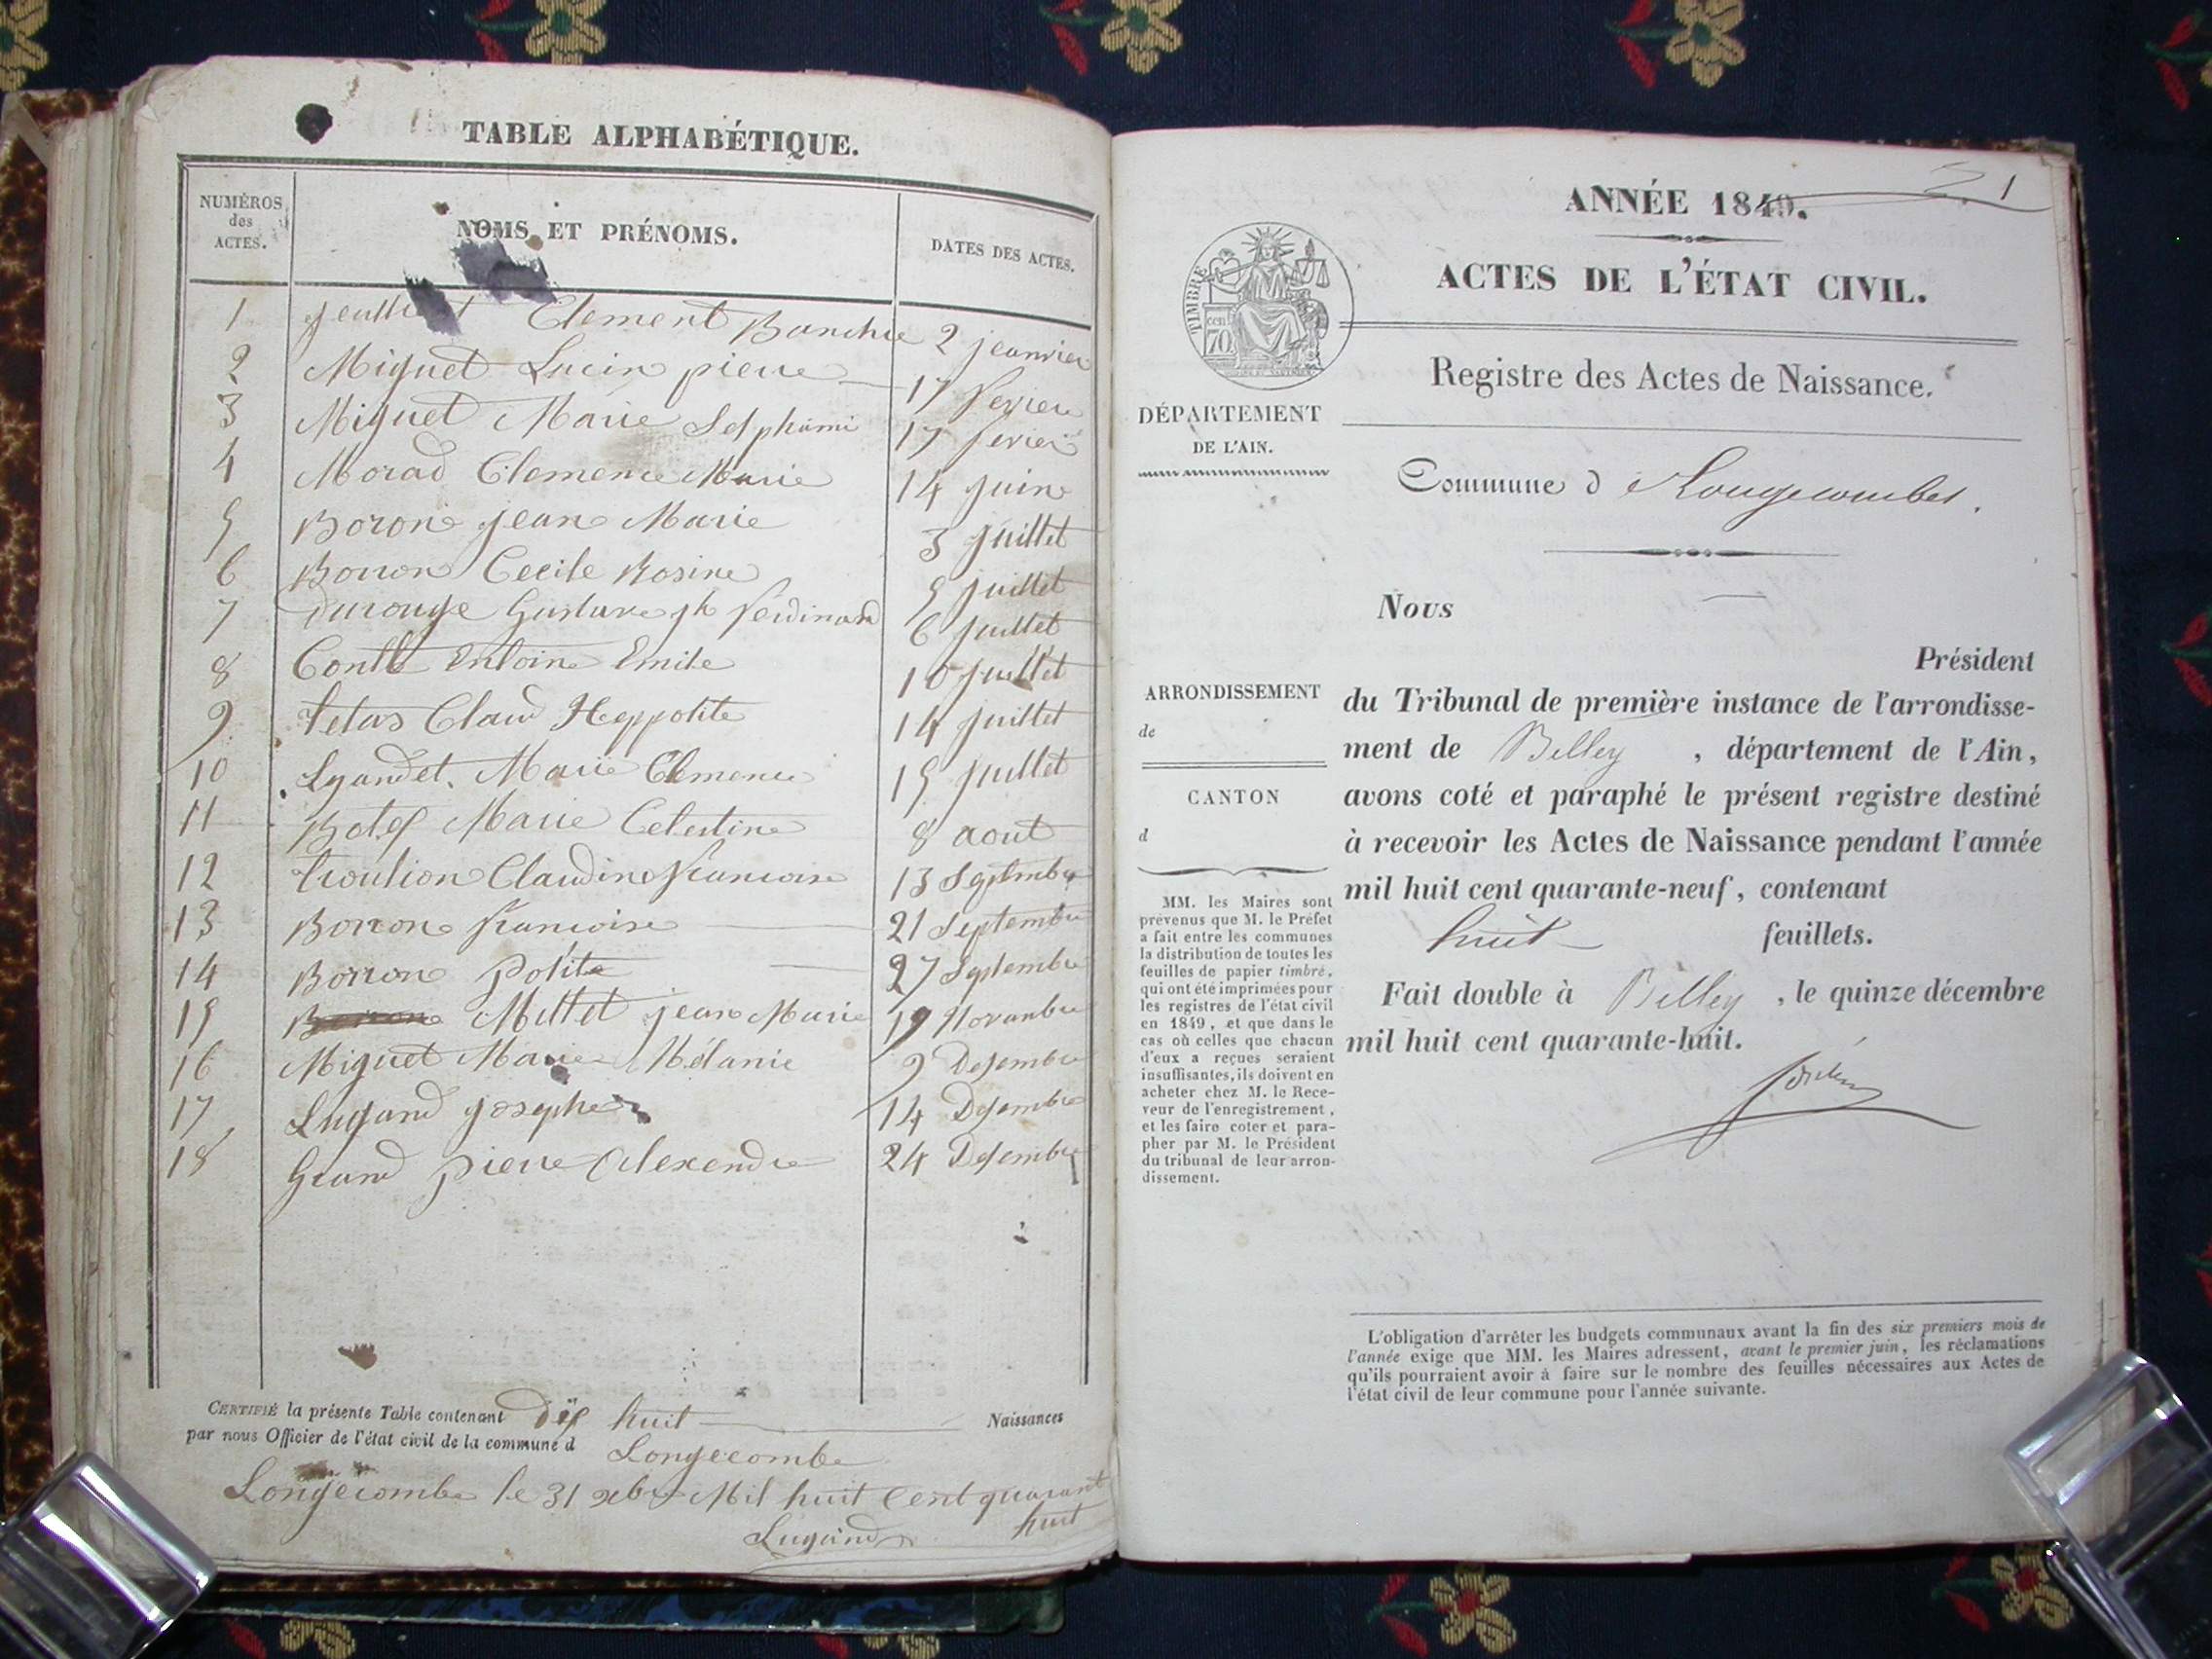 TABLE ALPHABÉTIQUE.
NUMÉROS
des
ACTES.
NOMS ET PRÉNOMS.
DATES DES ACTES.
1 Clement 2 jeanvier
2 Miguet Lucin pierre 17 fevrier
3 Miguet Marie 17 fevrier
4 Morad Clemence Marie 14 juin
5 Boron jean Marie 3 juillet
6 Borron Cecile Rosine 5 juillet
7 Durouge Gustave jh ferdinand 6 juillet
8 Conte Entoine Emile 10 juillet
9 Claud Heppolite 14 juillet
10 Marie Clemence 15 juillet
11 Marie Celestine 8 aout
12 Claudine francoise 13 Septembre
13 Borron francoise 21 Septembre
14 Borron Polite 27 Septembre
15 Borron Millet jean Marie 19 Novembre
16 Miguet Marie Mélanie 9 Desembre
17 Lugand joseph 14 Desembre
18 Grand pierre Alexendre 24 Desembre
CERTIFIÉ la présente Table contenant dix huit Naissances
par nous Officier de l'état civil de la commune d Longecombe
Longecombe le 31 xbre Mil huit Cent quarant
huit
Lugand
1
ANNÉE 1849.
ACTES DE L'ÉTAT CIVIL.
TIMBRE
cent
70
Registre des Actes de Naissance.
DÉPARTEMENT
DE L'AIN.
Commune d Longecombes.
Nous
Président
ARRONDISSEMENT
de
CANTON
d
du Tribunal de première instance de l'arrondisse-
ment de Belley, département de l'Ain,
avons coté et paraphé le présent registre destiné
à recevoir les Actes de Naissance pendant l'année
mil huit cent quarante-neuf, contenant
huit feuillets.
Fait double à Belley, le quinze décembre
mil huit cent quarante-huit.
MM. les Maires sont
prévenus que M. le Préfet
a fait entre les communes
la distribution de toutes les
feuilles de papier timbré,
qui ont été imprimées pour
les registres de l'état civil
en 1849, et que dans le
cas où celles que chacun
d'eux a reçues seraient
insuffisantes, ils doivent en
acheter chez M. le Rece-
veur de l'enregistrement,
et les faire coter et para-
pher par M. le Président
du tribunal de leur arron-
dissement.
L'obligation d'arrêter les budgets communaux avant la fin des six premiers mois de
l'année exige que MM. les Maires adressent, avant le premier juin, les réclamations
qu'ils pourraient avoir à faire sur le nombre des feuilles nécessaires aux Actes de
l'état civil de leur commune pour l'année suivante.